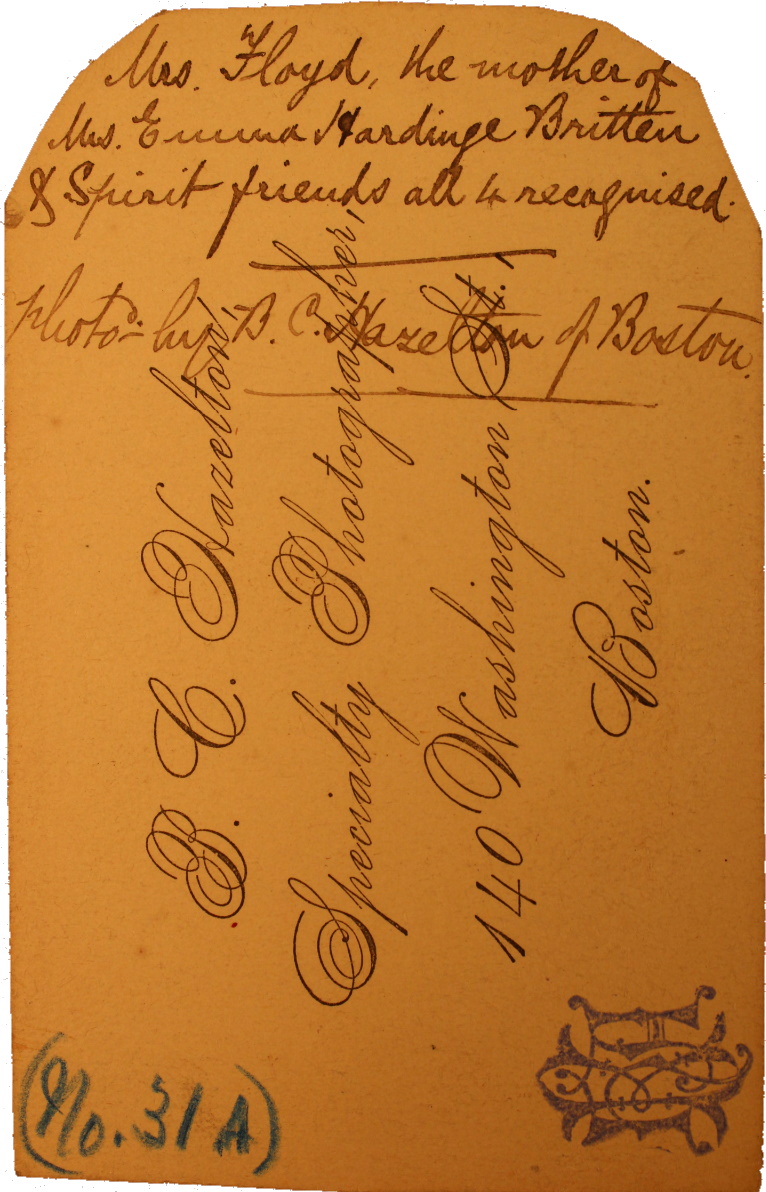 Mrs. Floyd, the mother of
Mrs. Emma Hardinge Britten
& Spirit friends all 4 recognised.
Photo'd by B. C. Hazelton of Boston.
B. C. Hazelton,
Specialty Photographer,
140 Washington St.,
Boston.
(No. 31 A)